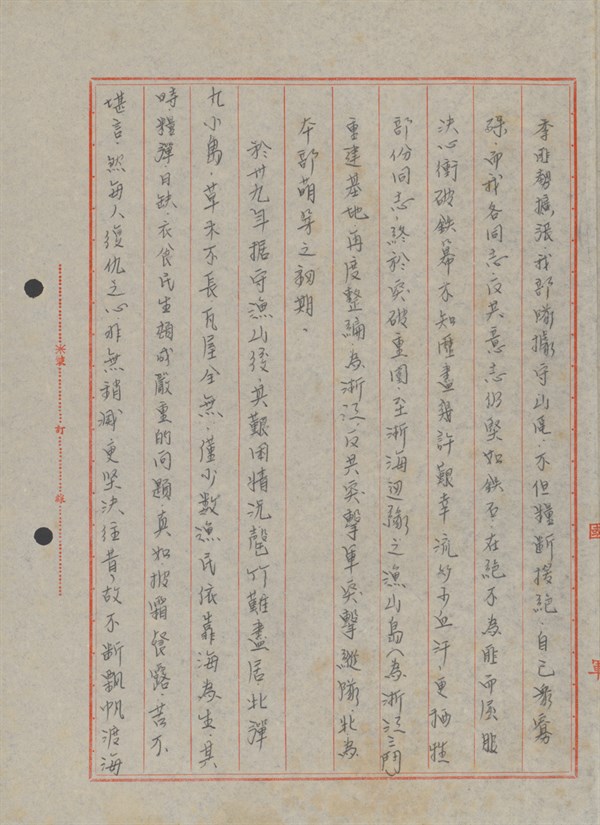 季匪勢擴張我部隊撤守山區、不但糧斷援絕、自己眾寡
碌、而我各同志反共意志仍堅如鉄石、在絕不為匪而屈服
決心衝破鉄幕不知歷盡幾許艱辛流多少血汗、更犧牲
部份同志、終於突破重圍、至浙海边緣之漁山島(為浙江三門
重建基地再度整編為浙江反共突擊軍突擊縱隊、此為
本部萌芽之初期、
於卅九年据守漁山後、其艱困情況罄竹難盡居北彈
九小島、草禾不長、瓦屋全無、僅少數漁民依靠海為生、其
時、糧彈日缺、衣食民生頓成嚴重的问題真如披霜餐露、苦不
堪言、然每人復仇之心非無稍減更堅決往昔、故不断飄帆渡海
號
訂
線
國
軍